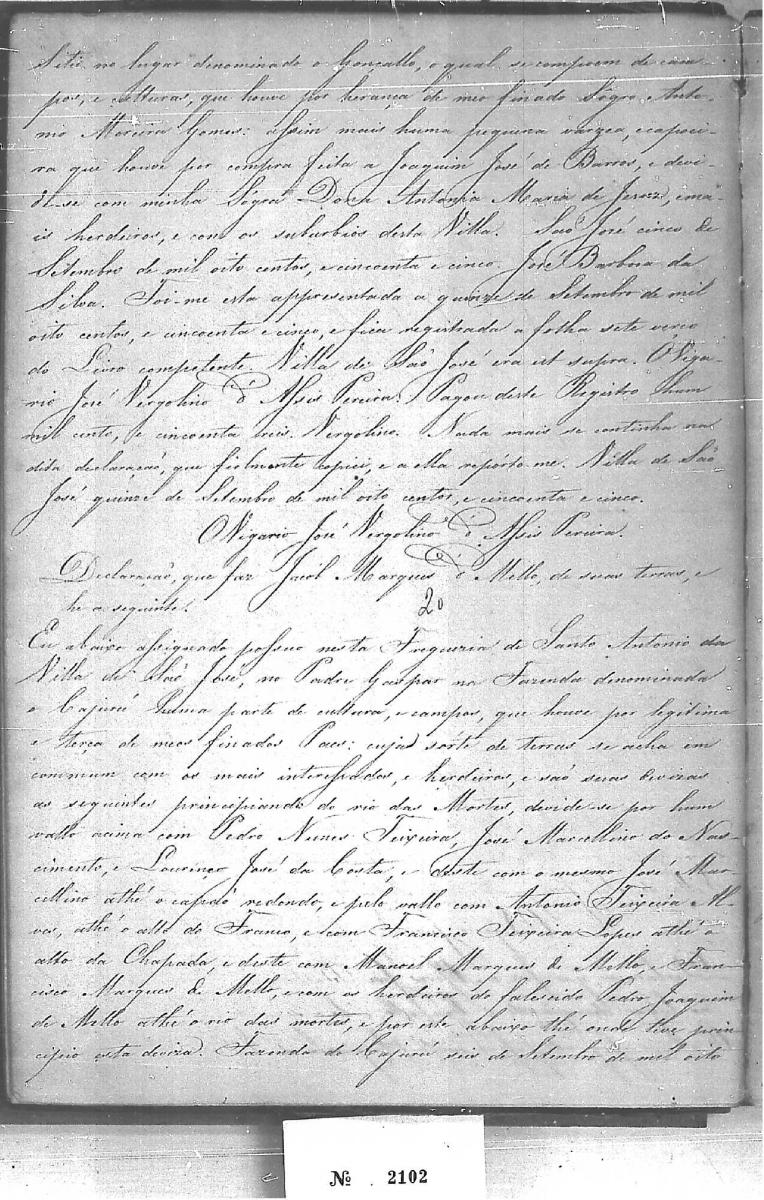 Sitio no lugar denominado o Goncallo, o qual se compoem de cam-
pos, e culturas, que houve por herança de meo finado Sogro Anto-
nio Moreira Gomes: assim mais huma pequena varzea, e capoei-
ra que houve por compra feita a Joaquim José de Barros, e devi-
de-se com minha Sogra Dona Antonia Maria de Jesus, e ma-
is herdeiros, e com os suburbios desta Villa. Saõ José cinco de
Setembro de mil oito centos, e cincoenta e cinco. José Barboza da
Silva. Foi-me esta appresentada a quinze de Setembro de mil
oito centos, e cincoenta e cinco, e fica registrada a folha sete verço
do Livro competente. Villa de Saõ José era ut supra. O Viga-
rio José Vergolino d'Assis Pereira. Pagou deste Registro hum
mil cento, e cincoenta reis. Vergolino. Nada mais se continha na
dita declaraçaõ, que fielmente copiei, e a ella reporto-me. Villa de Saõ
José quinze de Setembro de mil oito centos, e cincoenta e cinco.
O Vigario José Vergolino d'Assis Pereira.
Declaraçaõ, que faz Jacob Marques d'Mello, de suas terras, e
he a seguinte.
20
Eu abaixo assignado possuo nesta Freguezia de Santo Antonio da
Villa de Saõ José, no Padre Gaspar na Fazenda denominada
o Cajurú huma parte de cultura, e campos, que houve por legitima
e terça de meos finados Paes: cuja sorte de terras se acha em
commum com os mais interessados, e herdeiros, e saõ suas devizas
as seguintes principiando do rio das Mortes, devide-se por hum
vallo acima com Pedro Nunes Teixeira, José Marcellino do Nas-
cimento, e Lourenço José da Costa, e deste com o mesmo José Mar-
cellino athé o capaõ redondo, e pelo vallo com Antonio Teixeira Al-
ves, athé o alto do Franco, e com Francisco Teixeira Lopes athé o
alto da Chapada, e deste com Manoel Marques de Mello, e Fran-
cisco Marques de Mello, e com os herdeiros do falescido Pedro Joaquim
de Mello athé o rio das mortes, e por este abaixo thé onde teve prin-
cipio esta deviza. Fazenda do Cajurú seis de Setembro de mil oito
№ 2102